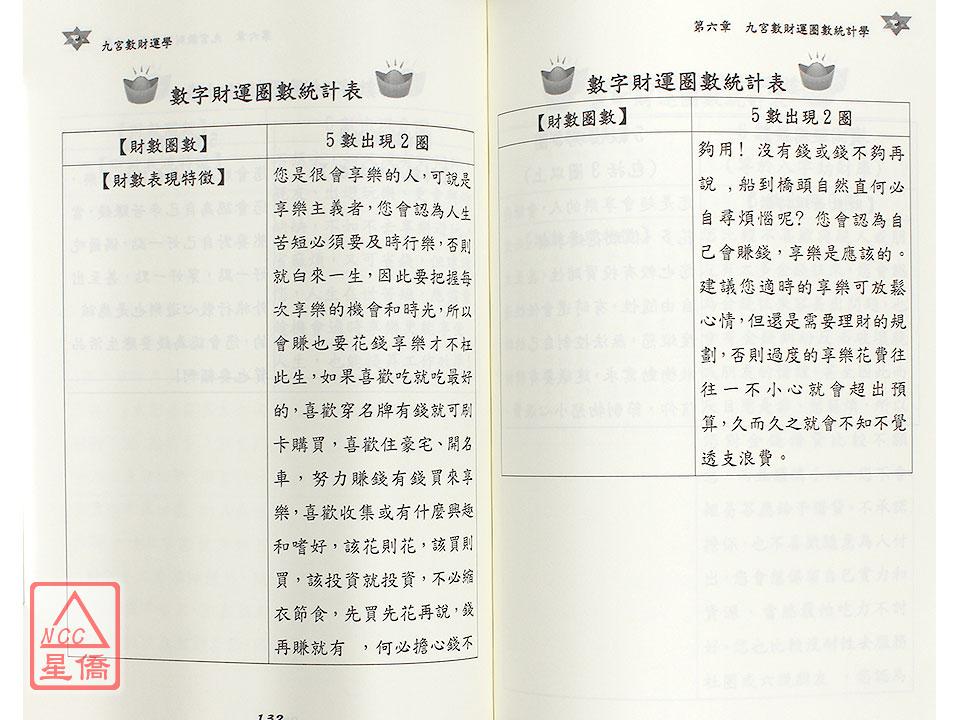 九宮數財運學
數字財運圈數統計表
【財數圈數】
5數出現2圈
【財數表現特徵】
您是很會享樂的人,可說是
享樂主義者,您會認為人生
苦短必須要及時行樂,否則
就白來一生,因此要把握每
次享樂的機會和時光,所以
會賺也要花錢享樂才不枉
此生,如果喜歡吃就吃最好
的,喜歡穿名牌有錢就可刷
卡購買,喜歡住豪宅、開名
車,努力賺錢有錢買來享
樂,喜歡收集或有什麼興趣
和嗜好,該花則花,該買則
買,該投資就投資,不必縮
衣節食,先買先花再說,錢
再賺就有 ,何必擔心錢不
132
NCC
星僑
第六章 九宮數財運圈數統計學
數字財運圈數統計表
【財數圈數】
5數出現2圈
夠用!沒有錢或錢不夠再
說,船到橋頭自然直何必
自尋煩惱呢?您會認為自
己會賺錢,享樂是應該的。
建議您適時的享樂可放鬆
心情,但還是需要理財的規
劃,否則過度的享樂花費往
往一不小心就會超出預
算,久而久之就會不知不覺
透支浪費。